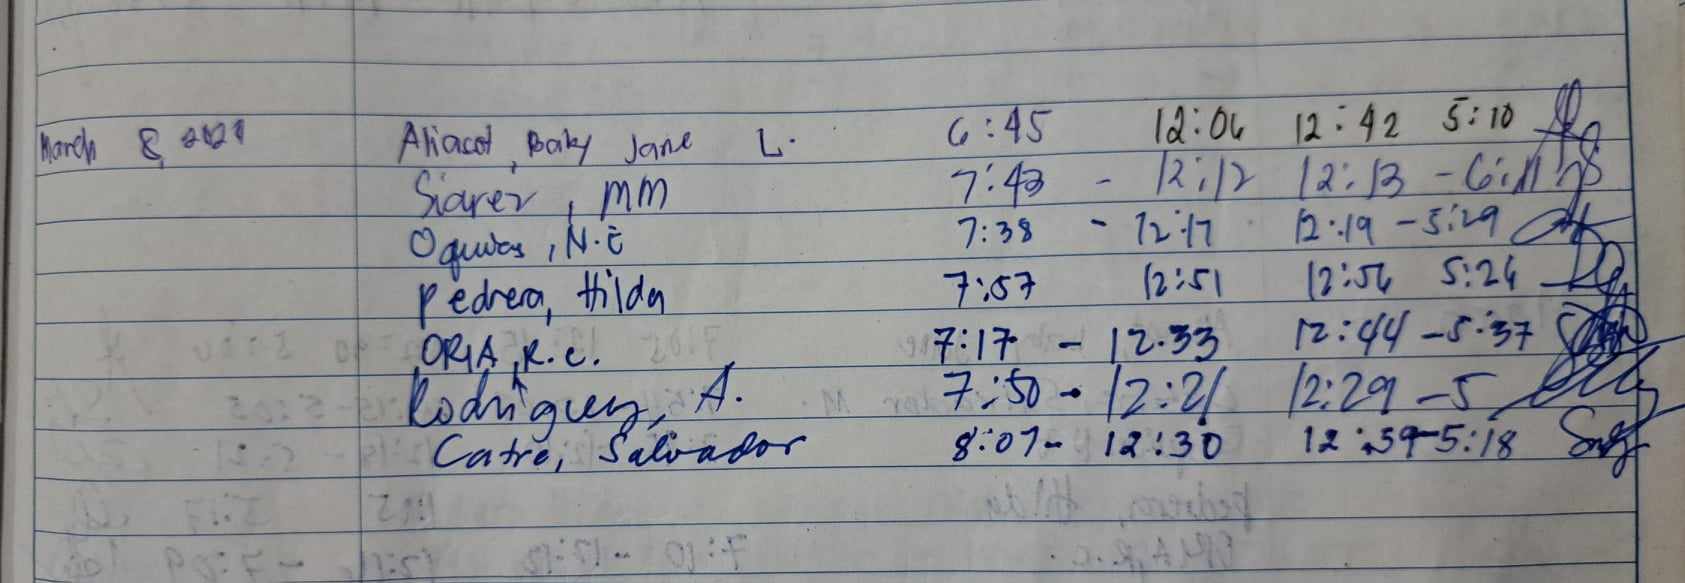 March 8, 2021 Aliacot, Baby Jane L. 6:45 12:06 12:42 5:10
Siarez, MM 7:43 - 12:12 12:13 - 6:11
Oquias, N.E 7:38 - 12:17 12:19 - 5:29
Pedrera, Hilda 7:57 12:51 12:56 5:26
ORIA, R.C. 7:17 - 12.33 12:44 - 5:37
Rodriguez, A. 7:50 - 12:21 12:29 - 5
Catre, Salvador 8:07 - 12:30 12:39-5:18